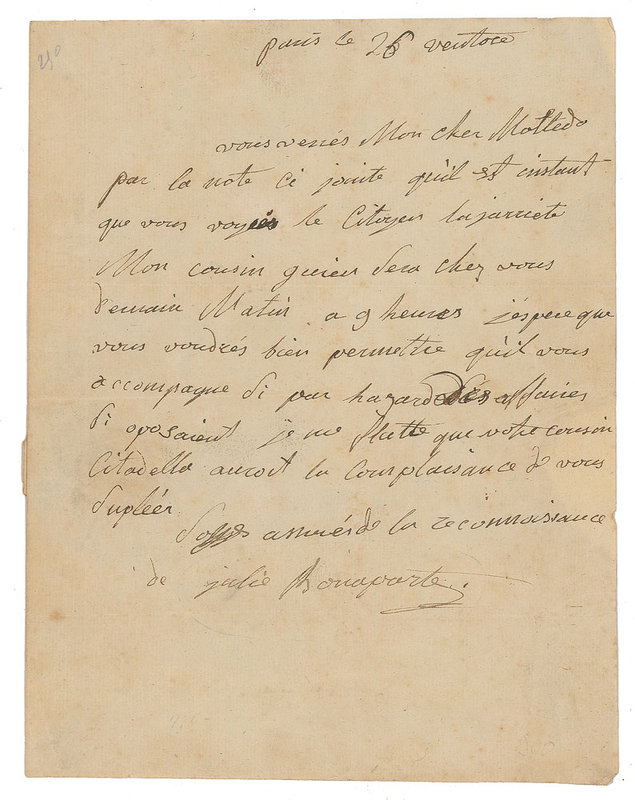 paris le 26 ventose
vous verrés Mon cher Mottedo
par la note ci jointe qu'il est instant
que vous voyiés le Citoyen lajariete
Mon cousin guieu sera chez vous
demain Matin a 9 heures j'éspere que
vous voudrés bien permettre qu'il vous
accompagne si par hazard des affaires
s'i oposaient je me flatte que votre cousin
Citadella auroit la Complaisance de vous
supléer
soyés assurés de la reconnaissance
de julie Bonaparte.